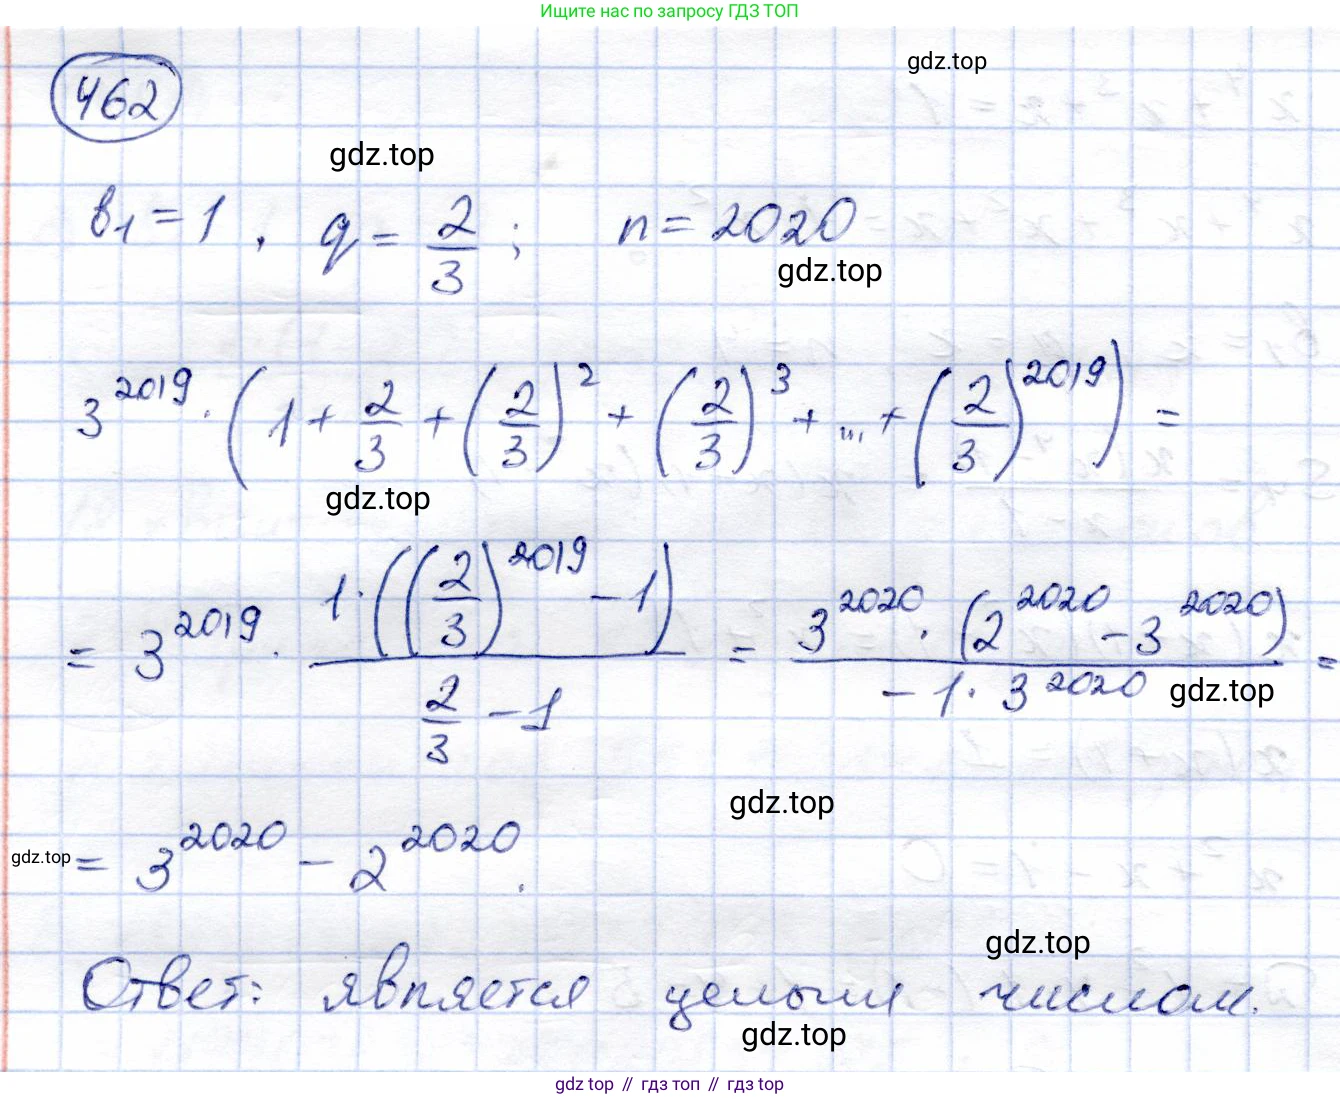 Ищите нас по запросу ГДЗ ТОП
gdz.top
462
gdz.top
b₁ = 1, q = 2/3; n = 2020
gdz.top
3^2019 · (1 + 2/3 + (2/3)^2 + (2/3)^3 + ... + (2/3)^2019) =
gdz.top
= 3^2019 · (1 · ((2/3)^2019 − 1)) / (2/3 − 1) = (3^2020 · (2^2020 − 3^2020)) / (−1 · 3^2020) =
gdz.top
gdz.top
gdz.top
= 3^2020 − 2^2020.
gdz.top
Ответ: является целым числом.
gdz.top
gdz top // гдз топ // гдз top